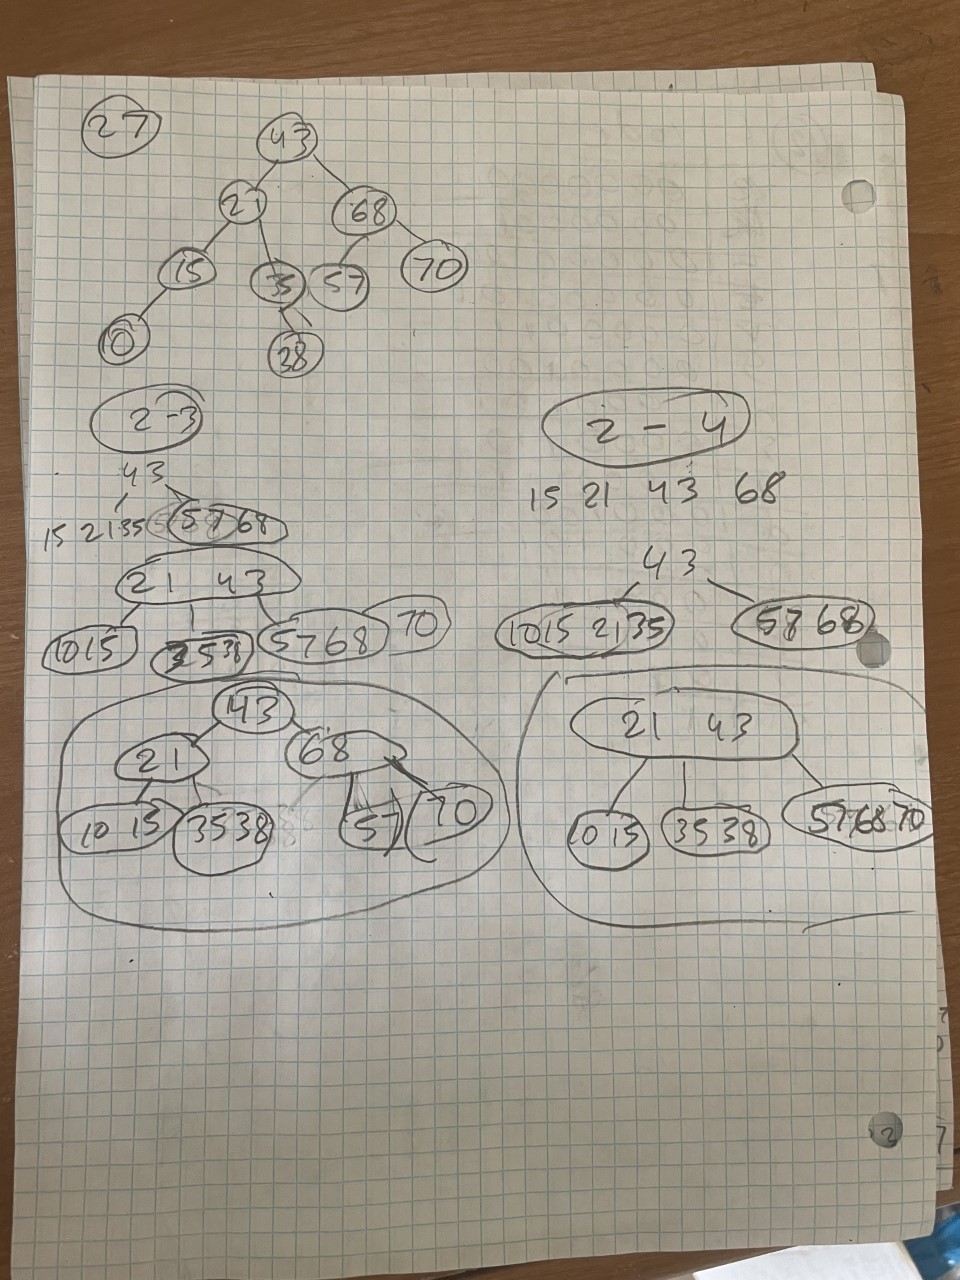 27
43
21 68
15 35 57 70
10 38
2-3
43
15 21 35 57 68
21 43
10 15 35 38 57 68 70
43
21 68
10 15 35 38 57 70
2 - 4
15 21 43 68
43
10 15 21 35 57 68
21 43
10 15 35 38 57 68 70